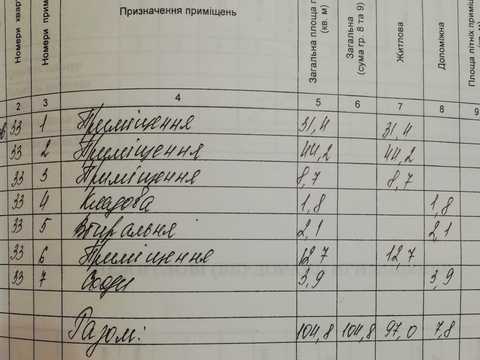 Номери кварт
Номери прим
Призначення приміщень
Загальна площа п
(кв. м)
Загальна
(сума гр. 8 та 9)
Житлова
Допоміжна
Площа літніх приміщ
2 3 4 5 6 7 8 9
33 1 Приміщення 31,4 31,4
33 2 Приміщення 44,2 44,2
33 3 Приміщення 8,7 8,7
33 4 Кладова 1,8 1,8
33 5 Вбиральня 2,1 2,1
33 6 Приміщення 12,7 12,7
33 7 Сходи 3,9 3,9
Разом: 104,8 104,8 97,0 7,8